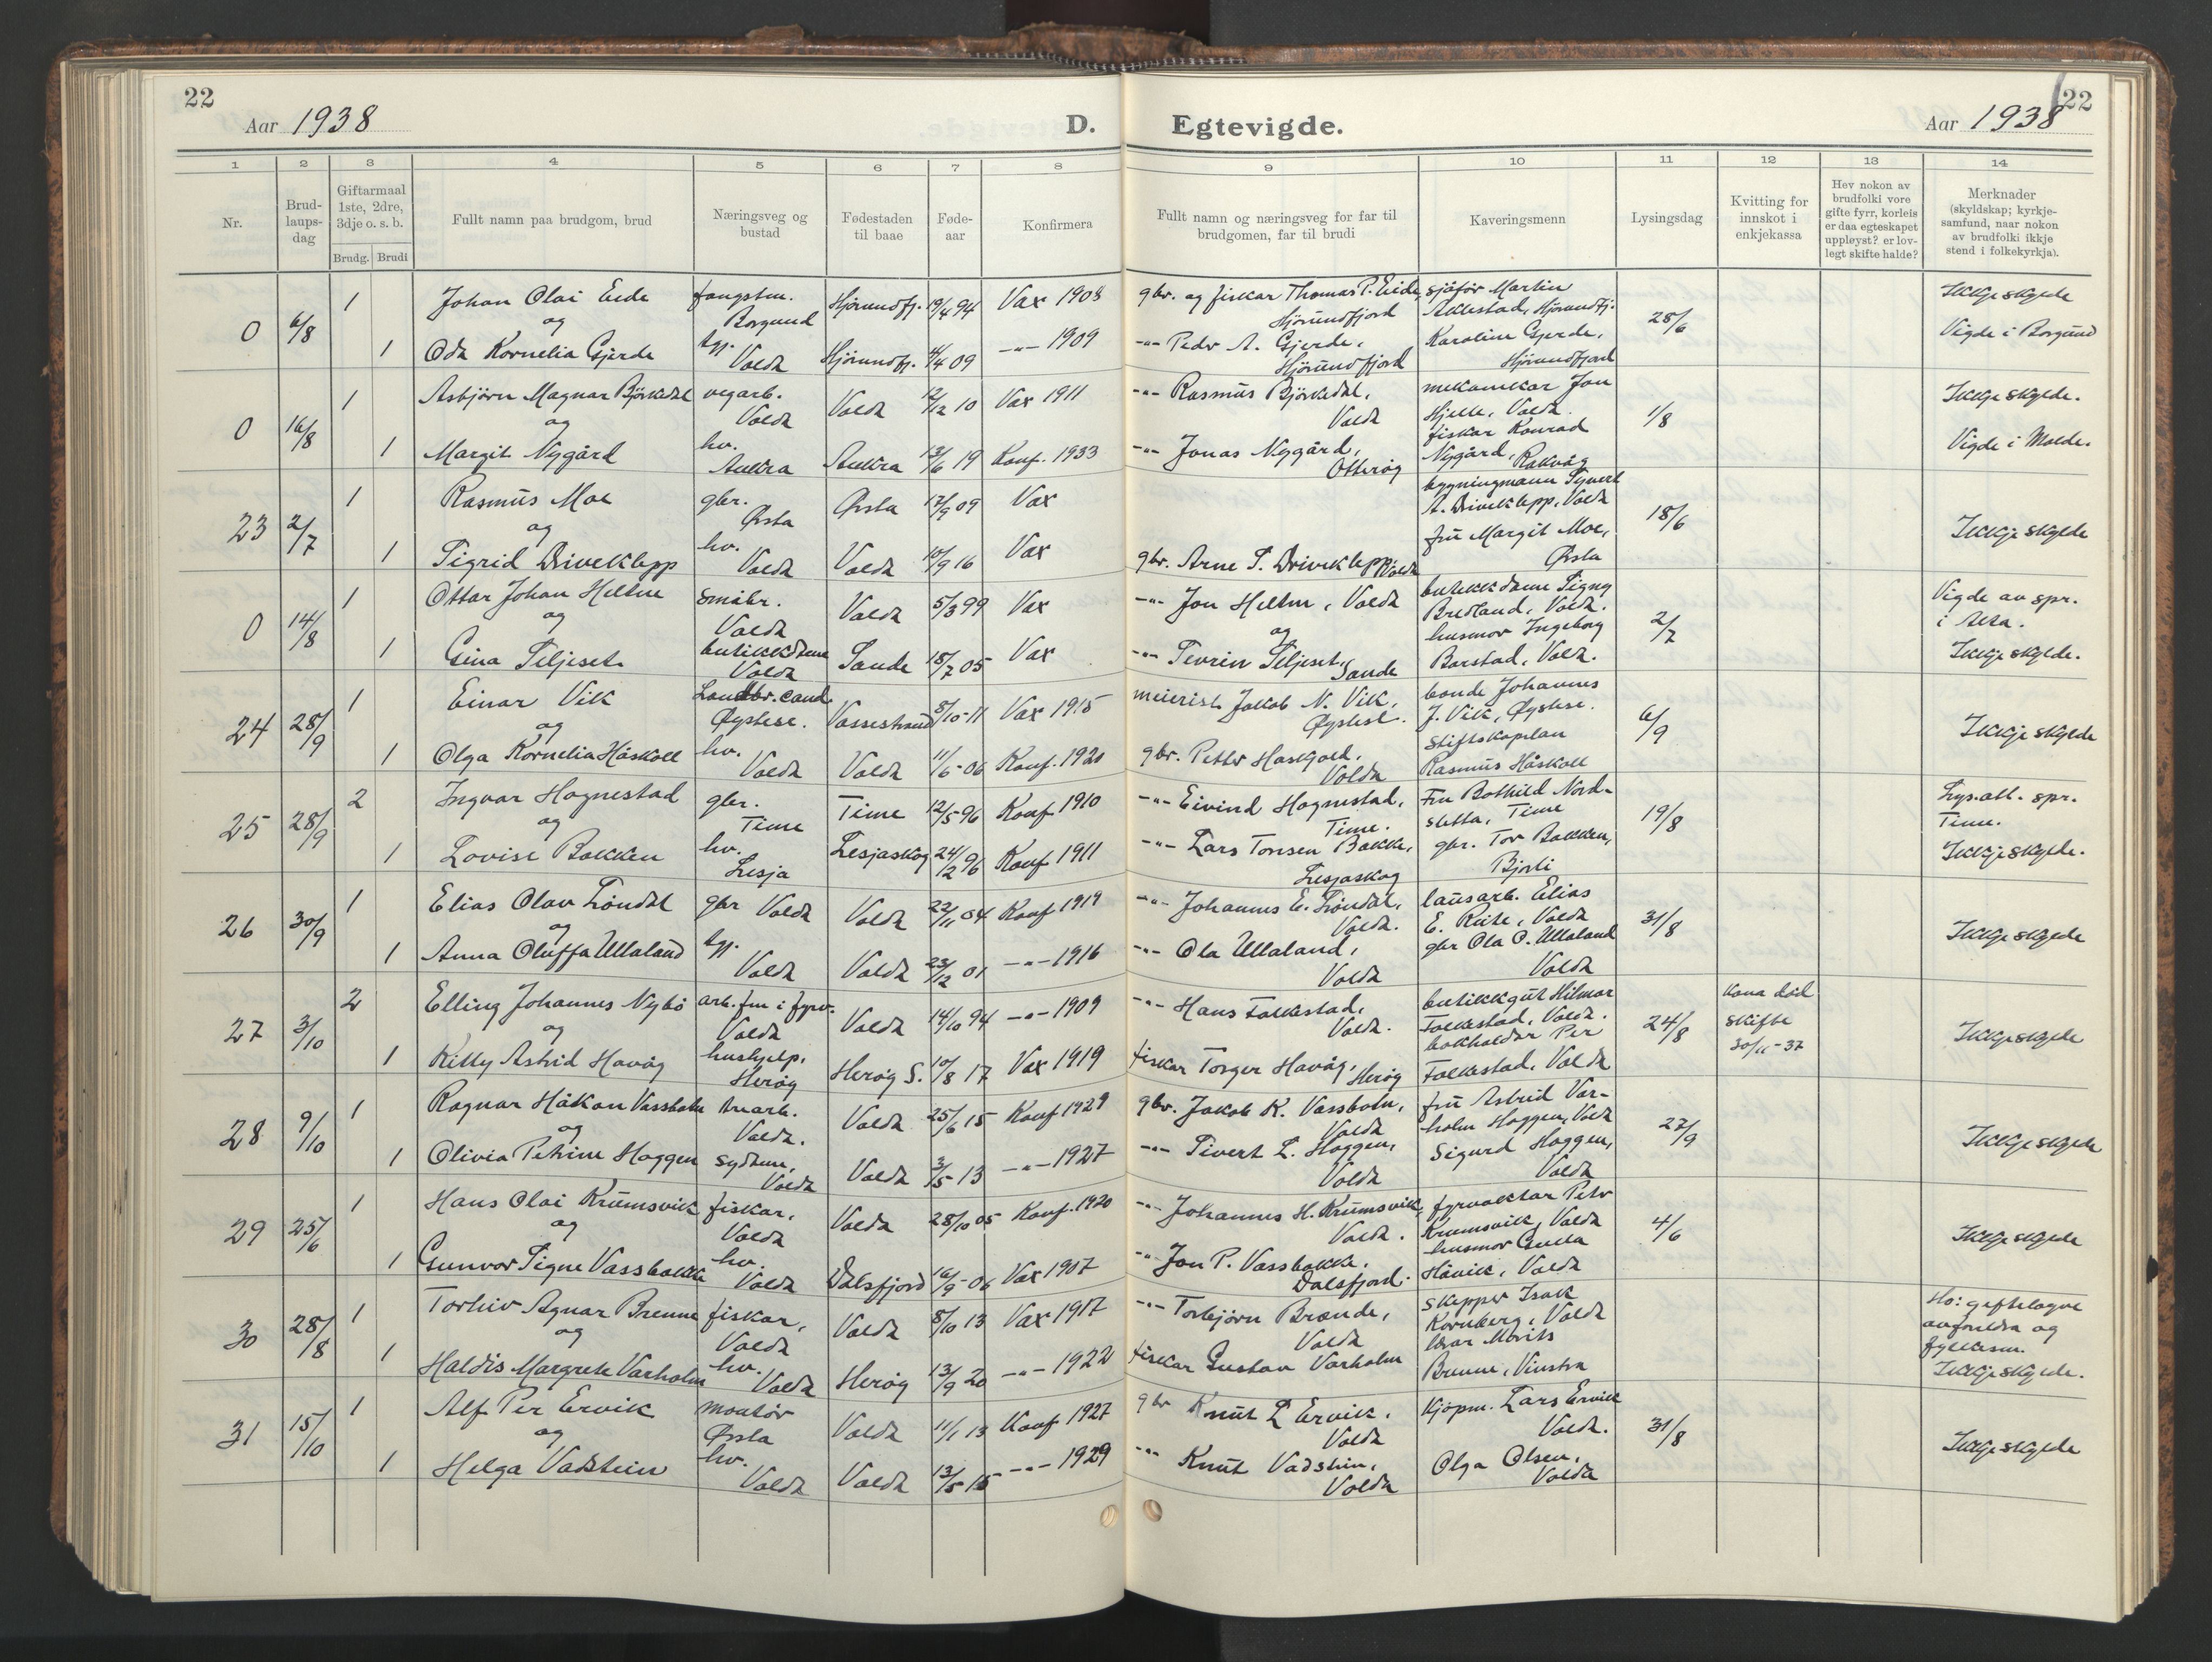 22
Aar 1938
D.
Egtevigde.
22
Aar 1938
1 2 3 4 5 6 7 8 9 10 11 12 13 14
Nr.
Brud-
laups-
dag
Giftarmaal
1ste, 2dre,
3dje o. s. b.
Brudg. Brudi
Fullt namn paa brudgom, brud
Næringsveg og
bustad
Fødestaden
til baae
Føde-
aar
Konfirmera
Fullt namn og næringsveg for far til
brudgomen, far til brudi
Kaveringsmenn
Lysingsdag
Kvitting for
innskot i
enkjekassa
Hev nokon av
brudfolki vore
gifte fyrr, korleis
er daa egteskapet
uppløyst? er lov-
legt skifte halde?
Merknader
(skyldskap; kyrkje-
samfund, naar nokon
av brudfolki ikkje
stend i folkekyrkja).
0 6/8
1 Johan Olai Eide fangstm. Borgund Hjørundfj. 19/4 94 Vax 1908
og
1 Oda Kornelia Gjerde tgj. Volda Hjørundfj. 4/4 09 -"- 1909
gbr. og fiskar Thomas P. Eide, Hjørundfjord
-"- Peder A. Gjerde, Hjørundfjord
sjåfør Martin
Aklestad, Hjørundfj.
Karoline Gjerde,
Hjørundfjord
28/6
Ikkje skylde
Vigde i Borgund
0 16/8
1 Asbjørn Magnar Bjørkedal vegarb. Volda Volda 12/12 10 Vax 1911
og
1 Margit Nygård hv. Aukra Aukra 13/6 19 Konf. 1933
-"- Rasmus Bjørkedal, Volda
-"- Jonas Nygård, Otterøy
mekanikar Jon
Hjelle, Volda.
fiskar Konrad
Nygård, Rakvåg
1/8
Ikkje skylde.
Vigde i Molde.
23 2/7
1 Rasmus Moe gbr. Ørsta Ørsta 17/9 09 Vax
og
1 Sigrid Driveklepp hv. Volda Volda 10/9 16 Vax
gbr. Arne S. Driveklepp, Volda
bygningmann Syvert
A. Driveklepp, Volda
fru Margit Moe,
Ørsta
18/6
Ikkje skylde
0 14/8
1 Ottar Johan Heltne småbr. Volda Volda 5/3 99 Vax
og
1 Gina Siljeset butikkdame Volda Sande 18/7 05 Vax
-"- Jon Heltne, Volda
og
-"- Severin Siljeset, Sande
butikkdame Signy
Bredland, Volda.
husmor Ingeborg
Barstad, Volda.
2/7
Vigde av spr.
i Ørsta.
Ikkje skylde.
24 28/9
1 Einar Vik Landbr. cand Øystese. Vossestrand 8/10-11 Vax 1915
og
1 Olga Kornelia Håskoll hv. Volda Volda 11/6-06 Konf. 1920
meierist Jakob N. Vik, Øystese.
gbr. Petter Haskoll, Volda
bonde Johannes
J. Vik, Øystese.
stiftskapelan
Rasmus Håskoll
6/9
Ikkje skylde
25 28/9
2 Ingvar Hognestad gbr. Time Time 12/5-96 Konf 1910
og
1 Lovise Bakken hv. Lesja Lesjaskog 24/2 96 Konf 1911
-"- Eivind Hognestad, Time.
-"- Lars Torsen Bakke, Lesjaskog
Fru Bothild Nord-
sletta, Time
gbr. Tor Bakken,
Bjorli
19/8
Lys.att. spr.
Time.
Ikkje skylde.
26 30/9
1 Elias Olav Løndal gbr Volda Volda 22/11 04 Konf 1919
og
1 Anna Oluffa Ullaland tgj. Volda Volda 23/12 01 -"- 1916
-"- Johannes E. Løndal, Volda.
-"- Ola Ullaland, Volda
lausarb. Elias
E. Rute, Volda
gbr Ola O. Ullaland
Volda
31/8
Ikkje skylde
27 3/10
2 Elling Johannes Nybö arb.fm i fyrv. Volda Volda 14/10 94 -"- 1909
og
1 Kitty Astrid Havåg hushjelp, Herøy Herøy S. 10/8 17 Vax 1919
-"- Hans Folkestad, Volda.
fiskar Torger Havåg, Herøy
butikkgut Hilmar
Folkestad, Volda.
bokholdar Per
Folkestad, Volda
24/8
Kona död
skifte
30/11-37
Ikkje skylde
28 9/10
1 Ragnar Håkon Vassbotn trearb. Volda. Volda 25/6 15 Konf 1929
og
1 Olivia Petrine Hoggen sydame, Volda Volda 3/5 13 -"- 1927
gbr. Jakob K. Vassbotn, Volda
-"- Sivert L. Hoggen, Volda
fru Astrid Var-
holm Hoggen, Volda
Sigurd Hoggen,
Volda
27/9
Ikkje skylde
29 25/6
1 Hans Olai Krumsvik fiskar, Volda Volda 28/10 05 Konf. 1920
og
1 Gunvor Signe Vassbakke hv. Volda Dalsfjord 16/9-06 Vax 1907
-"- Johannes H. Krumsvik, Volda.
-"- Jon P. Vassbakke. Dalsfjord.
fyrvaktar Peter
Krumsvik, Volda
husmor Gulla
Håvik, Volda
4/6
Ikkje skylde
30 28/8
1 Torleiv Agnar Brenne fiskar, Volda Volda 8/10 13 Vax 1917
og
1 Haldis Margrete Varholm hv. Volda Herøy 13/9 20 -"- 1922
-"- Torbjørn Brende, Volda
fiskar Gustav Varholm
skipper Isak
Kornberg, Volda
Ivar Morits
Brenne, Vinstra
Ho: gifteløyve
av foreldra og
fylkesm.
Ikkje skylde.
31 15/10
1 Alf Per Ervik montör Ørsta Volda 11/1 13 Konf 1927
og
1 Helga Vadstein hv. Volda Volda 13/5 15 -"- 1929
gbr Knut L Ervik. Volda
-"- Knut Vadstein, Volda
kjøpm. Lars Ervik
Volda.
Olga Olsen,
Volda
31/8
Ikkje skylde